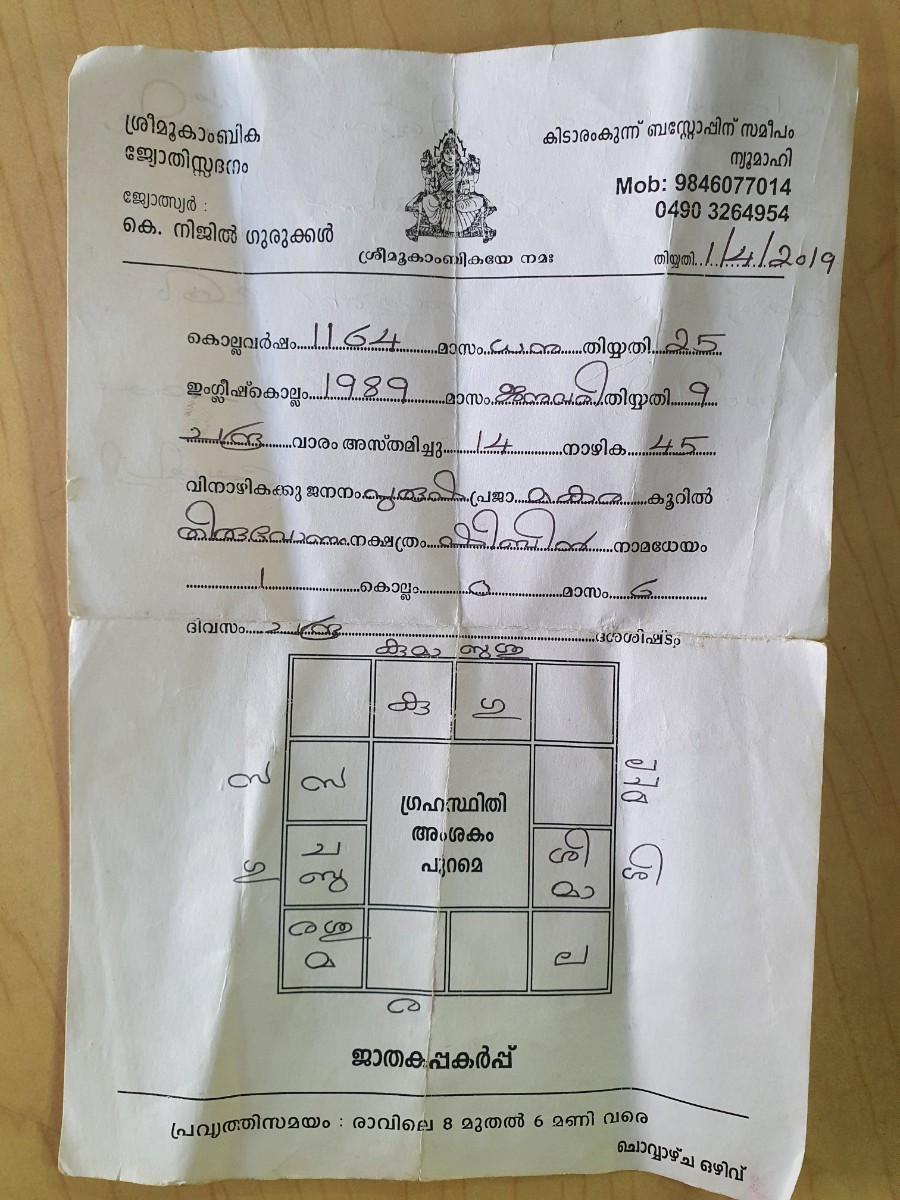 ശ്രീമൂകാംബിക
ജ്യോതിസ്സദനം
ജ്യോത്സ്യർ :
കെ. നിജിൽ ഗുരുക്കൾ
ശ്രീമൂകാംബികയേ നമഃ
കിടാരംകുന്ന് ബസ്റ്റോപ്പിന് സമീപം
ന്യൂമാഹി
Mob: 9846077014
0490 3264954
തിയ്യതി..1/4/2019
കൊല്ലവർഷം....1164....മാസം..ധനു....തിയ്യതി...25
ഇംഗ്ലീഷ്കൊല്ലം...1989....മാസം.ജനുവരി തിയ്യതി...9
വാരം അസ്തമിച്ചു....14....നാഴിക....45
വിനാഴികക്കു ജനനം പുരുഷ പ്രജാ...മകരം...കൂറിൽ
തിരുവോണം നക്ഷത്രം.......നാമധേയം
1.....കൊല്ലം.....0.....മാസം...6
ദിവസം.........ദശശിഷ്ടം
കു മാ ബു ശു
കു ഗു
സ സ
ഗു ച ബു ശി മാ ശി
ര ശു മ ല
ര
ഗ്രഹസ്ഥിതി
അംശകം
പുറമെ
ജാതകപ്പകർപ്പ്
പ്രവൃത്തിസമയം : രാവിലെ 8 മുതൽ 6 മണി വരെ
ചൊവ്വാഴ്ച ഒഴിവ്